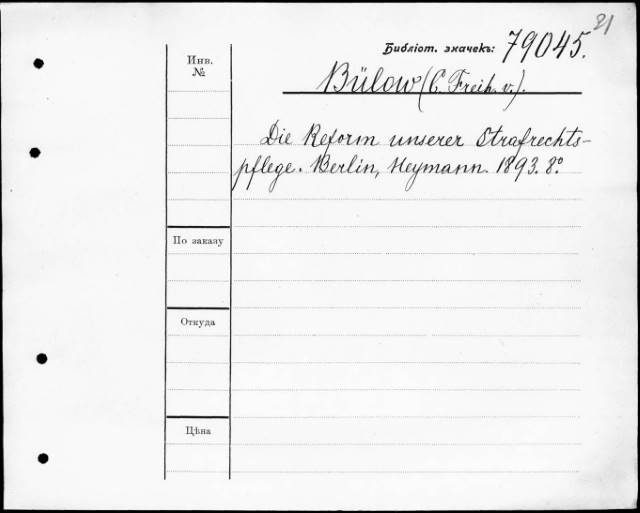 21
Библіот. значекъ: 79045.
Инв.
№
Bülow (C. Freih. v.).
Die Reform unserer Strafrechts-
pflege. Berlin, Heymann. 1893. 8°.
По заказу
Откуда
Цѣна